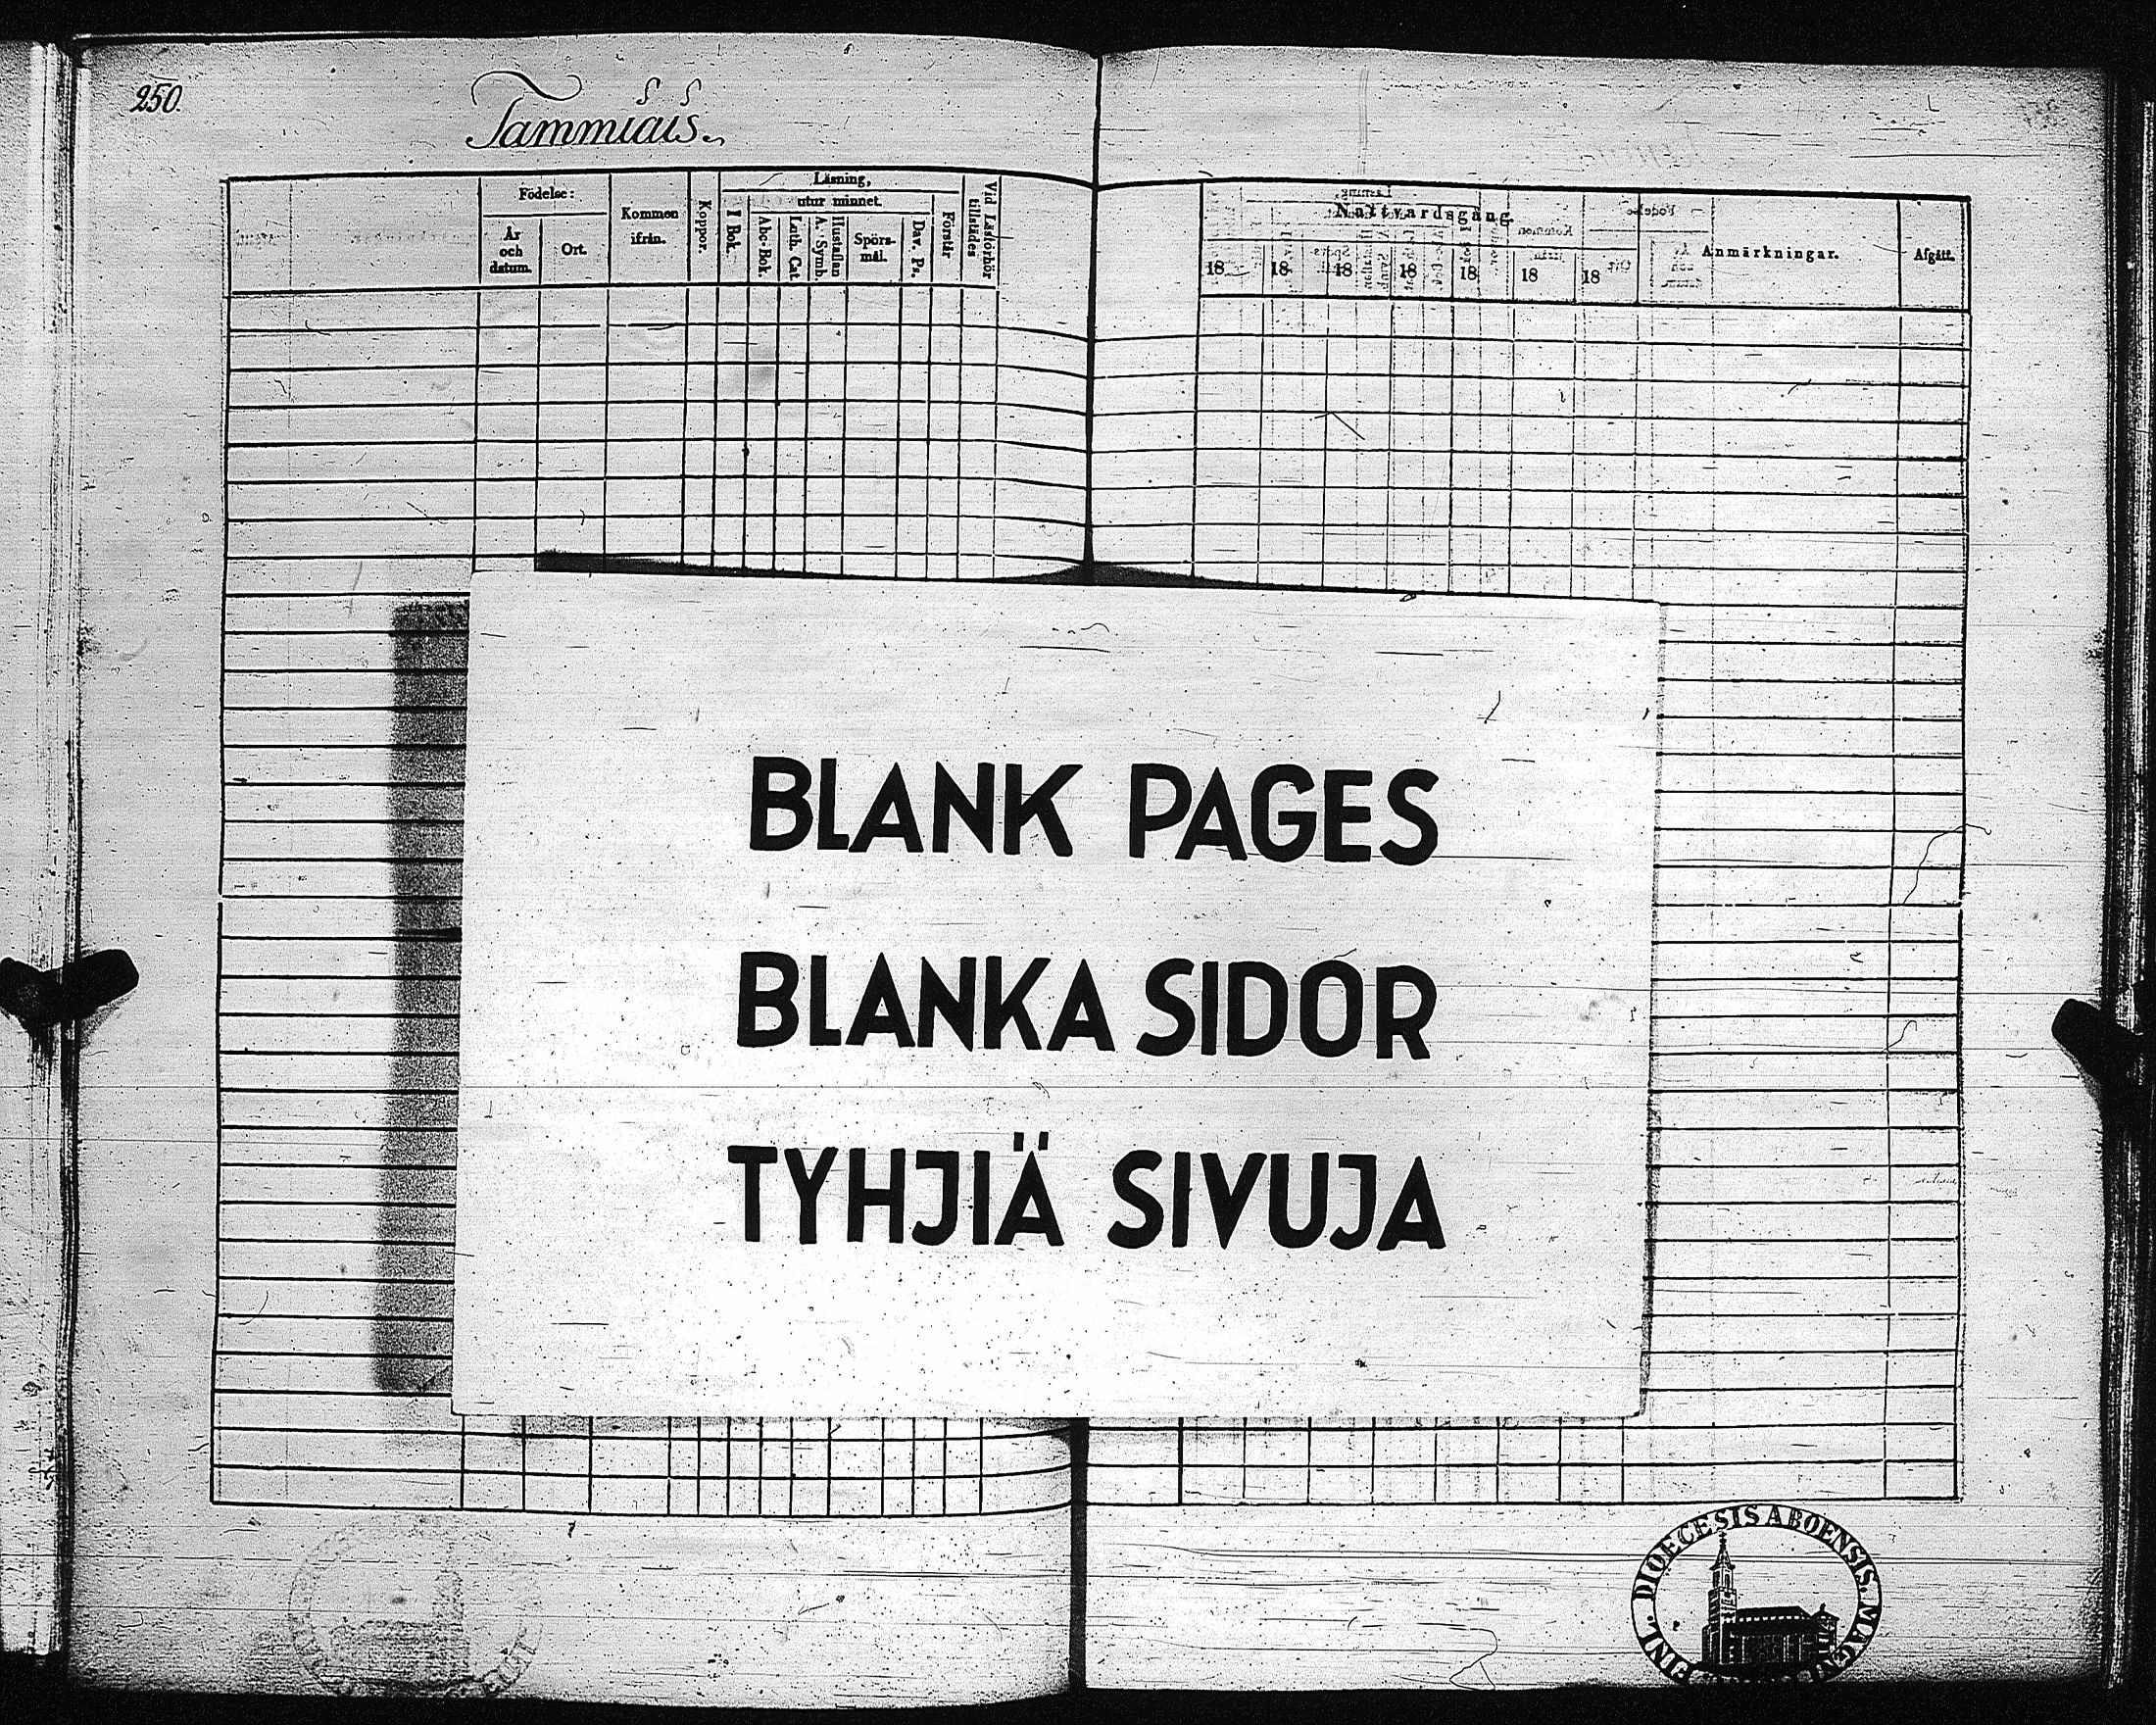 250.
Tammiais.
Födelse:
År och datum.
Ort.
Kommen ifrån.
Koppor.
Läsning,
utur minnet.
I Bok.
Abc-Bok.
Luth. Cat.
A. Symb.
Hustaflan
Spörs-
mål.
Dav. Ps.
Förstår
Vid Läsförhör
tillstädes
Nattvardsgång.
18 18 18 18 18 18 18
Anmärkningar.
Afgått.
BLANK PAGES
BLANKA SIDOR
TYHJIÄ SIVUJA
DIOECESIS ABOENSIS. MAGN
FINL.